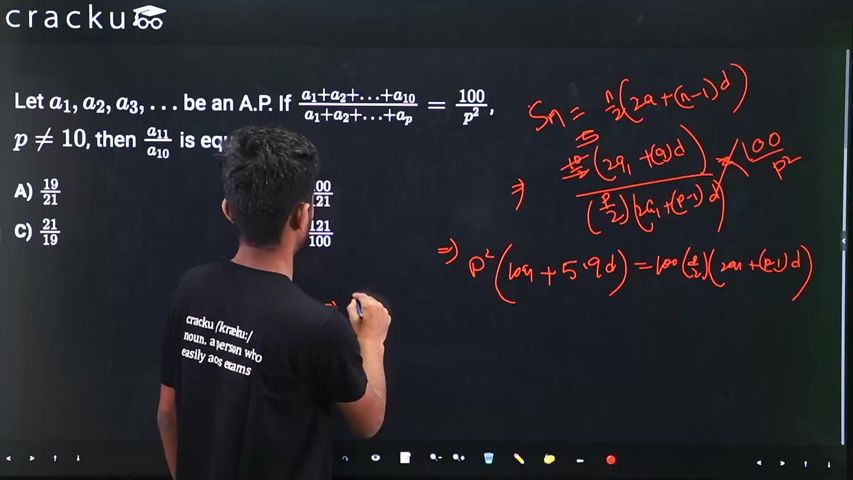 cracku
Let a₁, a₂, a₃, … be an A.P. If (a₁+a₂+…+a₁₀)/(a₁+a₂+…+aₚ) = 100/p²,
p ≠ 10, then a₁₁/a₁₀ is equ
A) 19/21
00/21
C) 21/19
121/100
Sn = n/2 (2a + (n-1)d)
5
⇒ (2a₁ + (9)d) / (p/2)(2a₁ + (p-1)d) = 100/p²
⇒ p² (10a₁ + 5·9d) = 100 (p/2) (2a₁ + (p-1)d)
⇒
cracku /krækuː/
noun. a person who
easily aces exams